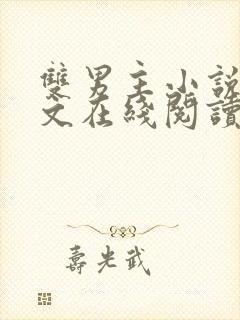 雙男主小說
文在綫閱讀
壽光武